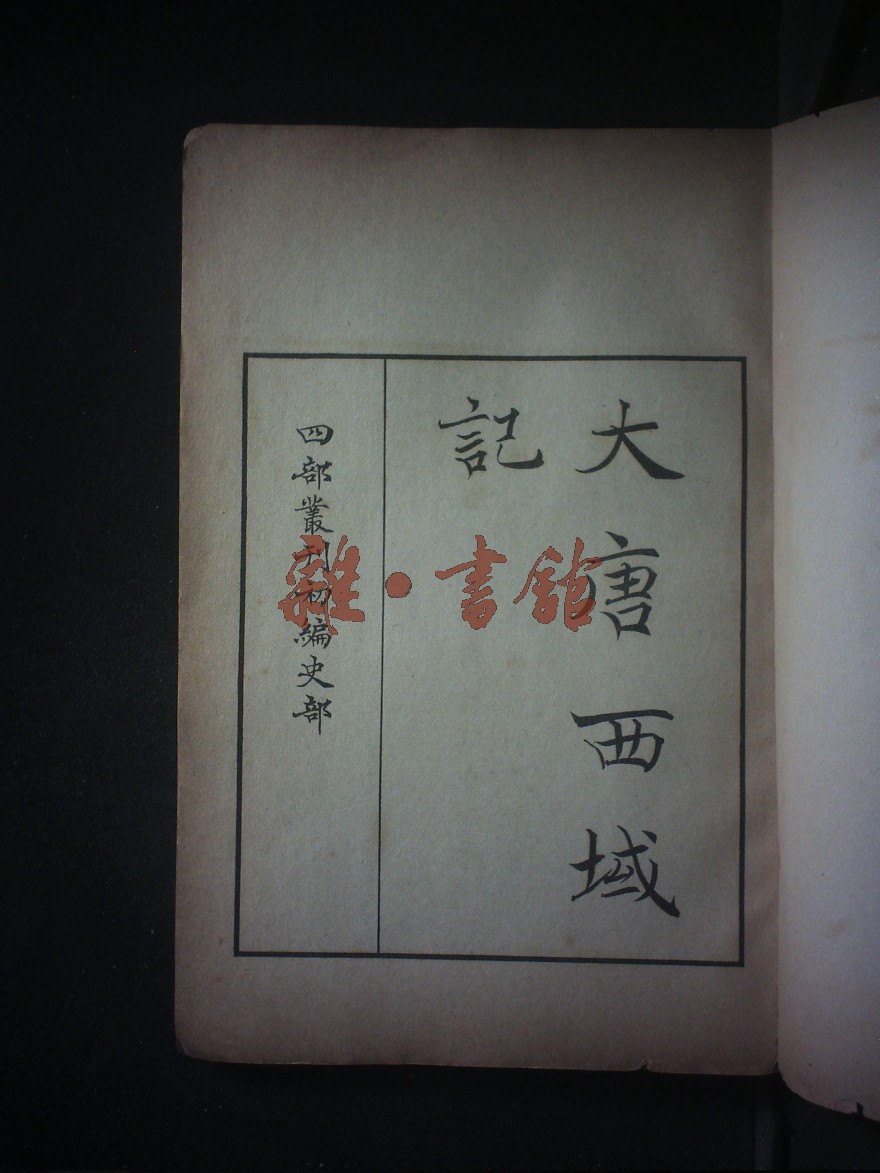 大唐西域
記
四部叢刊初編史部
雜·書館